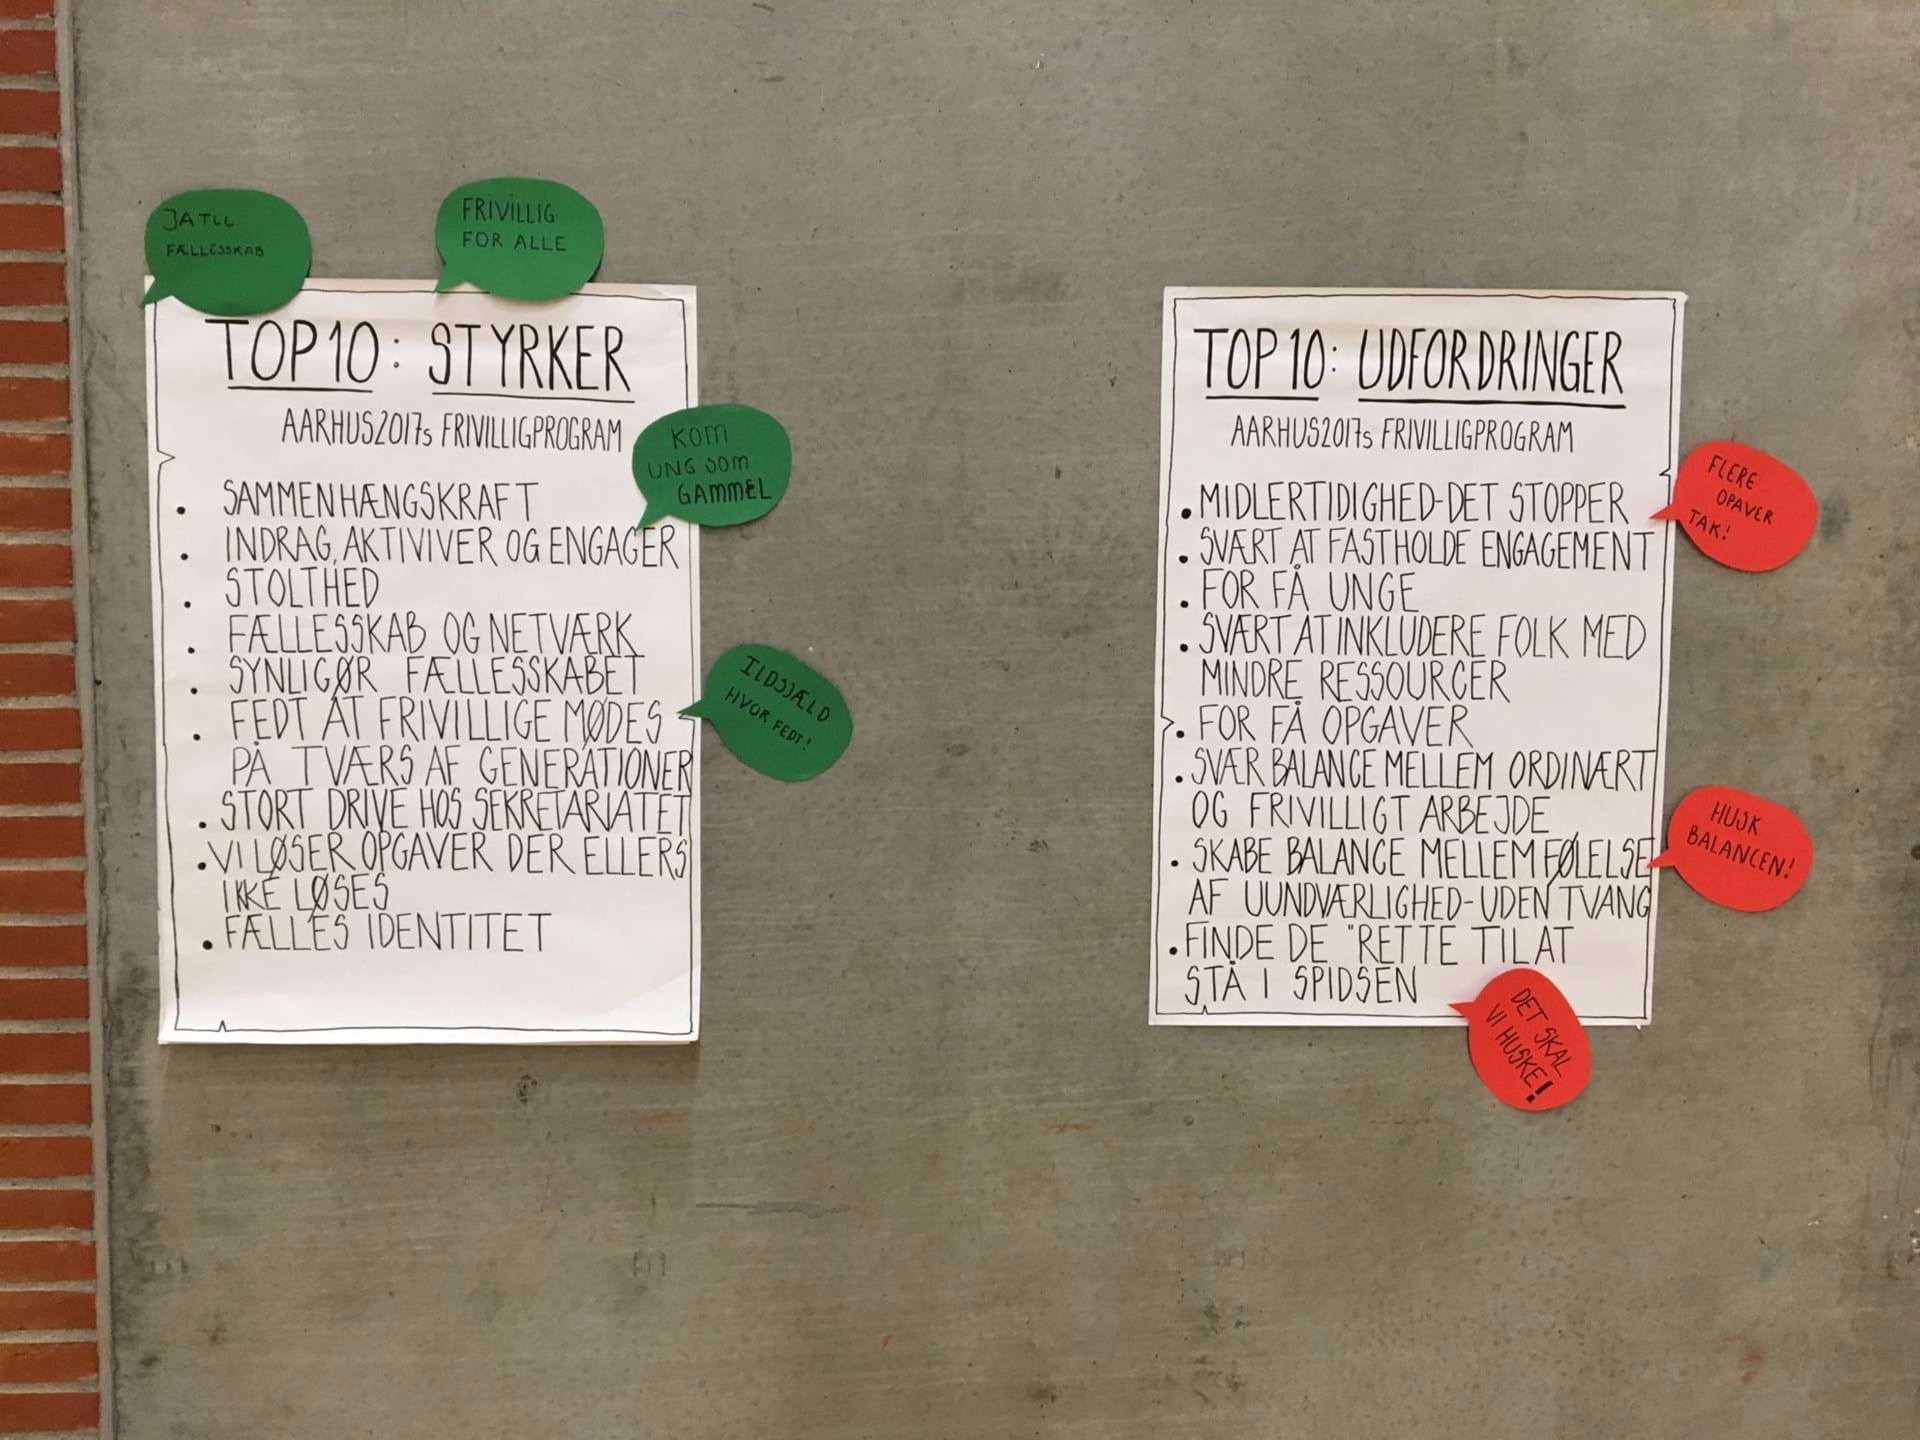 JA TIL
FÆLLESSKAB
FRIVILLIG
FOR ALLE
TOP 10: STYRKER
AARHUS2017s FRIVILLIGPROGRAM
KOM
UNG SOM
GAMMEL
• SAMMENHÆNGSKRAFT
• INDRAG, AKTIVIVER OG ENGAGER
• STOLTHED
• FÆLLESSKAB OG NETVÆRK
• SYNLIGØR FÆLLESSKABET
• FEDT AT FRIVILLIGE MØDES
PÅ TVÆRS AF GENERATIONER
• STORT DRIVE HOS SEKRETARIATET
• VI LØSER OPGAVER DER ELLERS
IKKE LØSES
• FÆLLES IDENTITET
ILDSJÆLD
HVOR FEDT!
TOP 10: UDFORDRINGER
AARHUS2017s FRIVILLIGPROGRAM
• MIDLERTIDIGHED-DET STOPPER
• SVÆRT AT FASTHOLDE ENGAGEMENT
• FOR FÅ UNGE
• SVÆRT AT INKLUDERE FOLK MED
MINDRE RESSOURCER
• FOR FÅ OPGAVER
• SVÆR BALANCE MELLEM ORDINÆRT
OG FRIVILLIGT ARBEJDE
• SKABE BALANCE MELLEM FØLELSE
AF UUNDVÆRLIGHED-UDEN TVANG
• FINDE DE "RETTE TIL AT
STÅ I SPIDSEN
FLERE
OPAVER
TAK!
HUSK
BALANCEN!
DET SKAL
VI HUSKE!